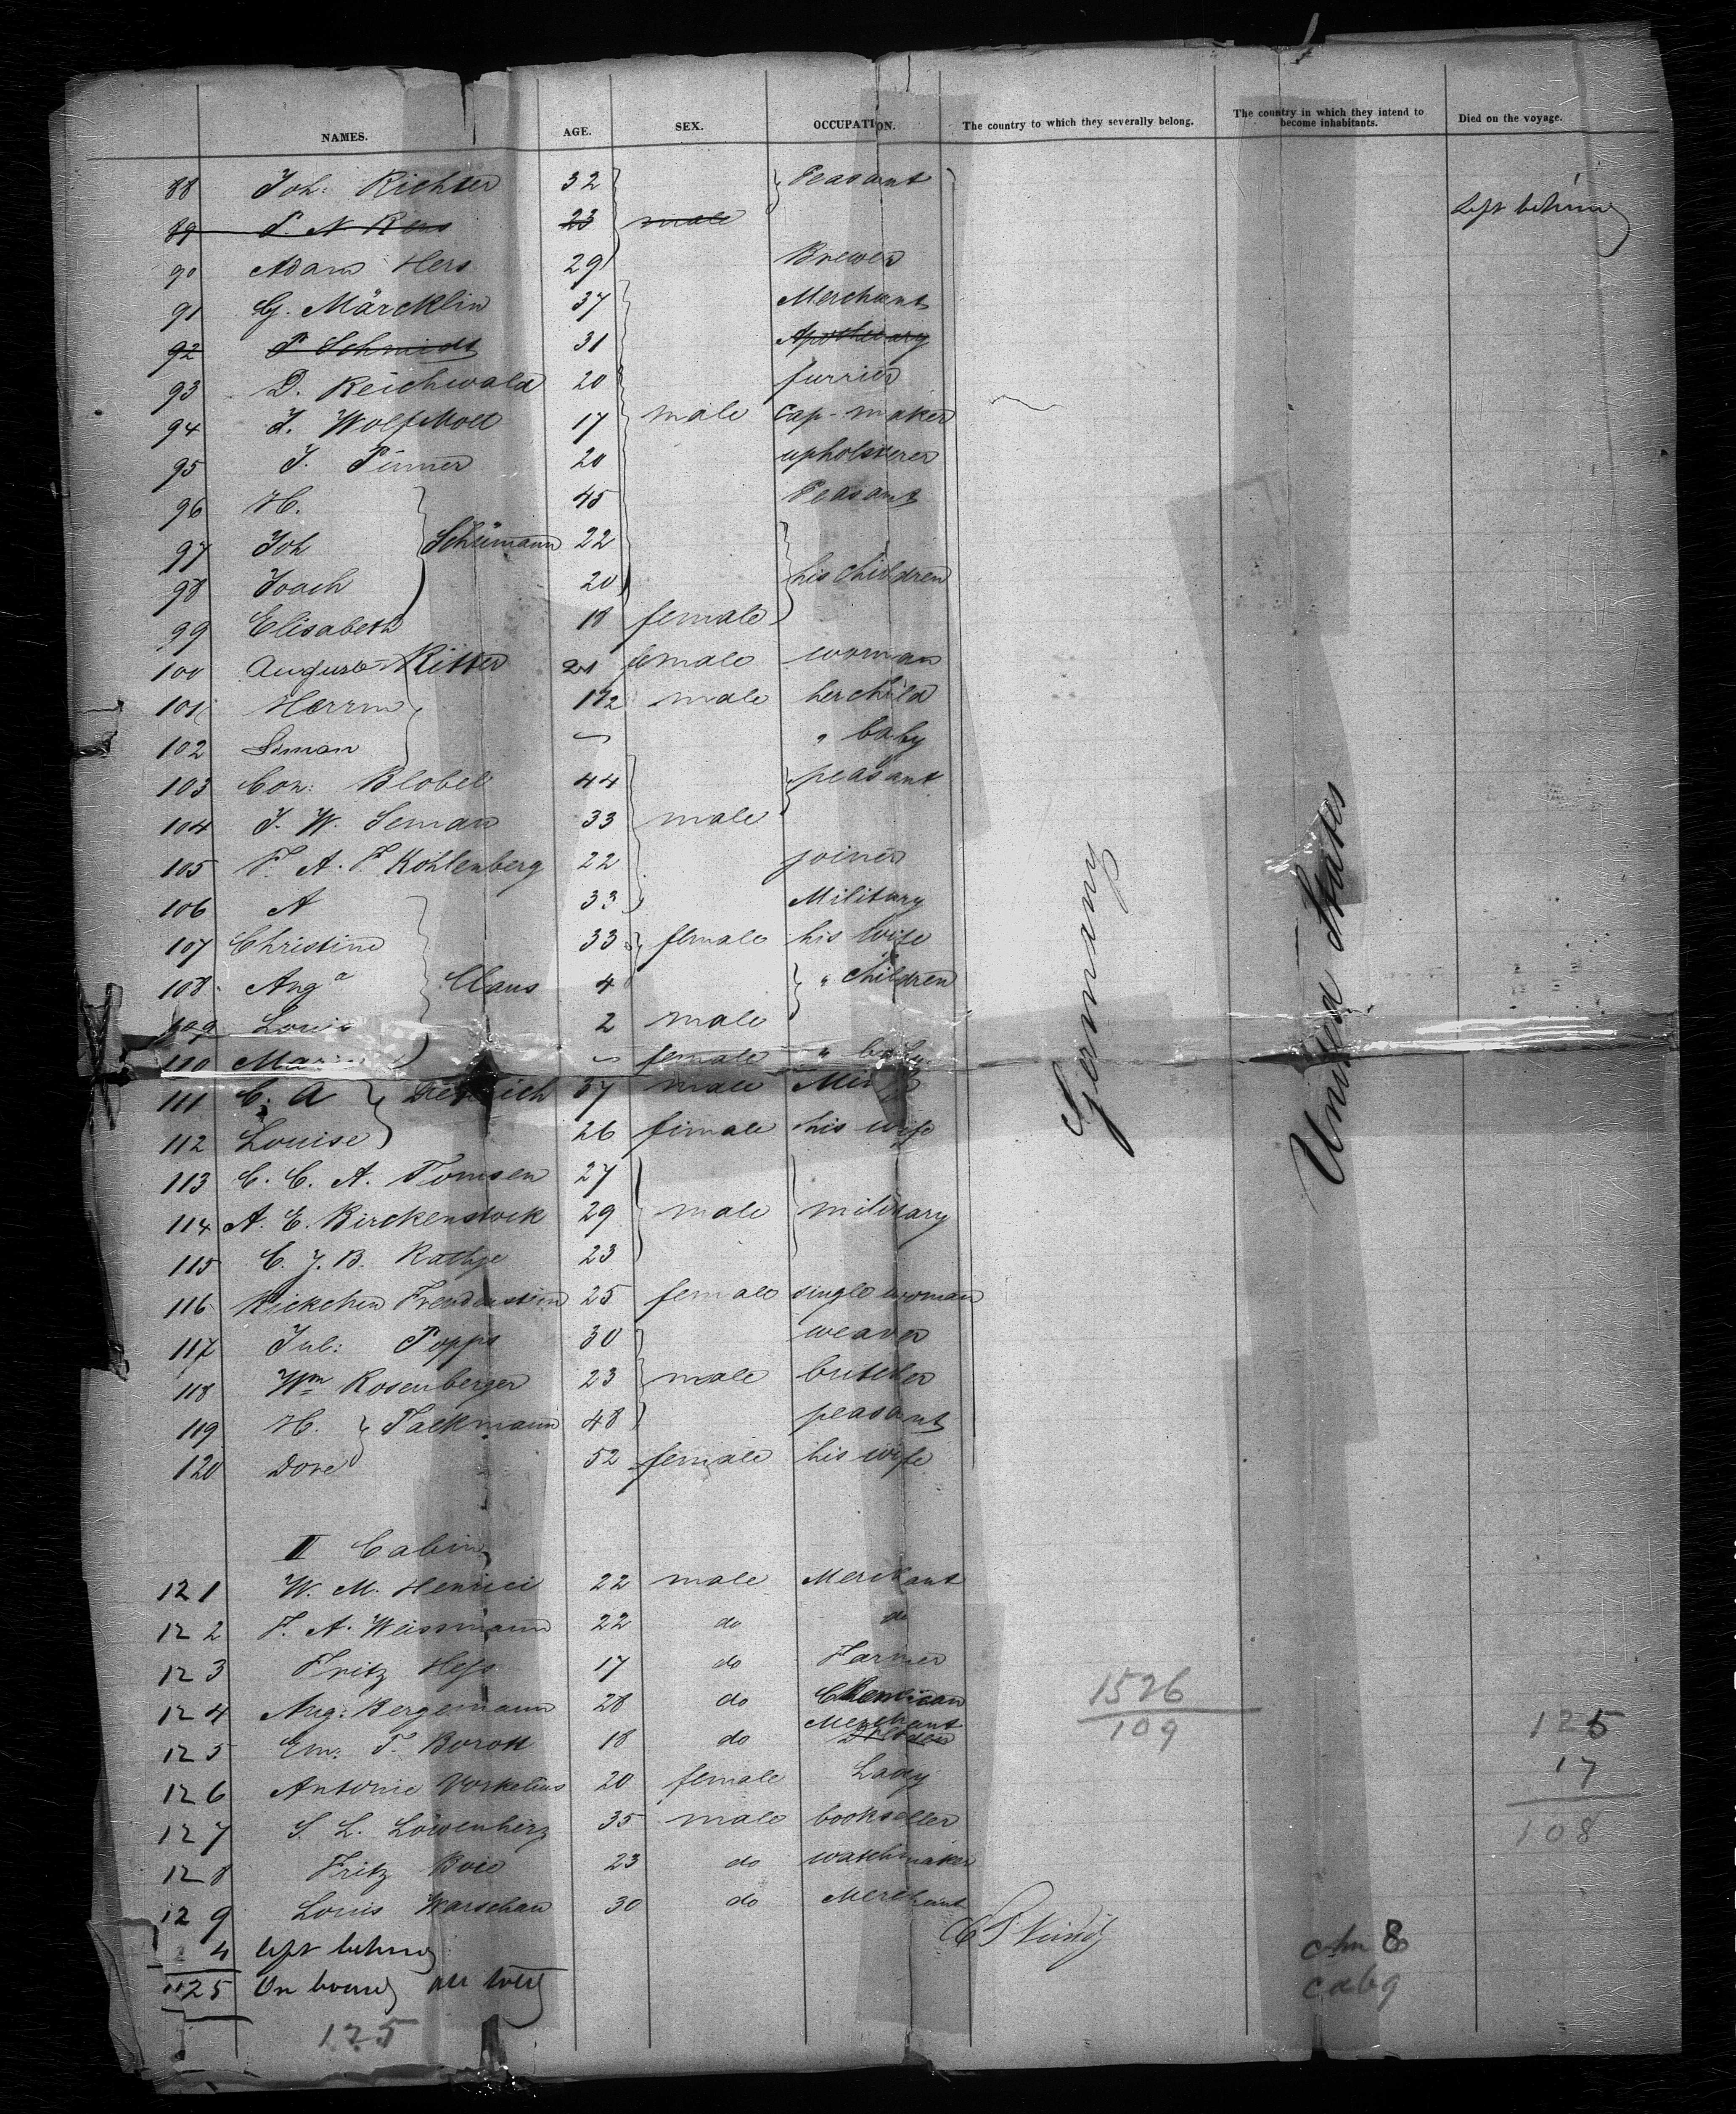 NAMES. AGE. SEX. OCCUPATION. The country to which they severally belong. The country in which they intend to become inhabitants. Died on the voyage.
88 Joh: Richter 32 Peasant
89 23 male left behind
90 Adam Hers 29 Brewer
91 G. Märcklin 37 Merchant
92 P Schmidt 31 Apothecary
93 D. Reichwald 20 furrier
94 17 male cap-maker
95 J. Pinner 20 upholsterer
96 H. 45 Peasant
97 Joh Schümann 22
98 Joach 20 his children
99 Elisabeth 18 female
100 Auguste Ritter 21 female woman
101 Herrm 1 1/2 male her child
102 " baby
103 Con: Blobel 44 peasant
104 J. W. Seman 33 male
105 F. A. F. Kohlenberg 22 joiner
106 A 33 Military
107 Christine 33 female his wife
108 Aug a Claus 4 " children
109 Louis 2 male
110 female " baby
111 C. A 37 male
112 Louise 26 female his wife
113 C. C. A. Tomsen 27
114 A. E. Birckenstock 29 male military
115 C. J. B. Rathje 23
116 25 female single woman
117 Jul: Popps 30 weaver
118 Wm Rosenberger 23 male butcher
119 H. Tackmann 48 peasant
120 Dore 52 female his wife
Germany
United States
II Cabin
121 W. M. Henrici 22 male Merchant
122 F. A. Weissmann 22 do do
123 Fritz Hess 17 do Farmer
124 Aug: Bergemann 28 do
125 Em: F. 18 do Merchant
126 Antonie 20 female Lady
127 S. L. Löwenherz 35 male bookseller
128 Fritz Boie 23 do watchmaker
129 Louis Warschau 30 do Merchant
4 left behind
125 On board all told
125
1526
109
125
17
108
8
cab 9